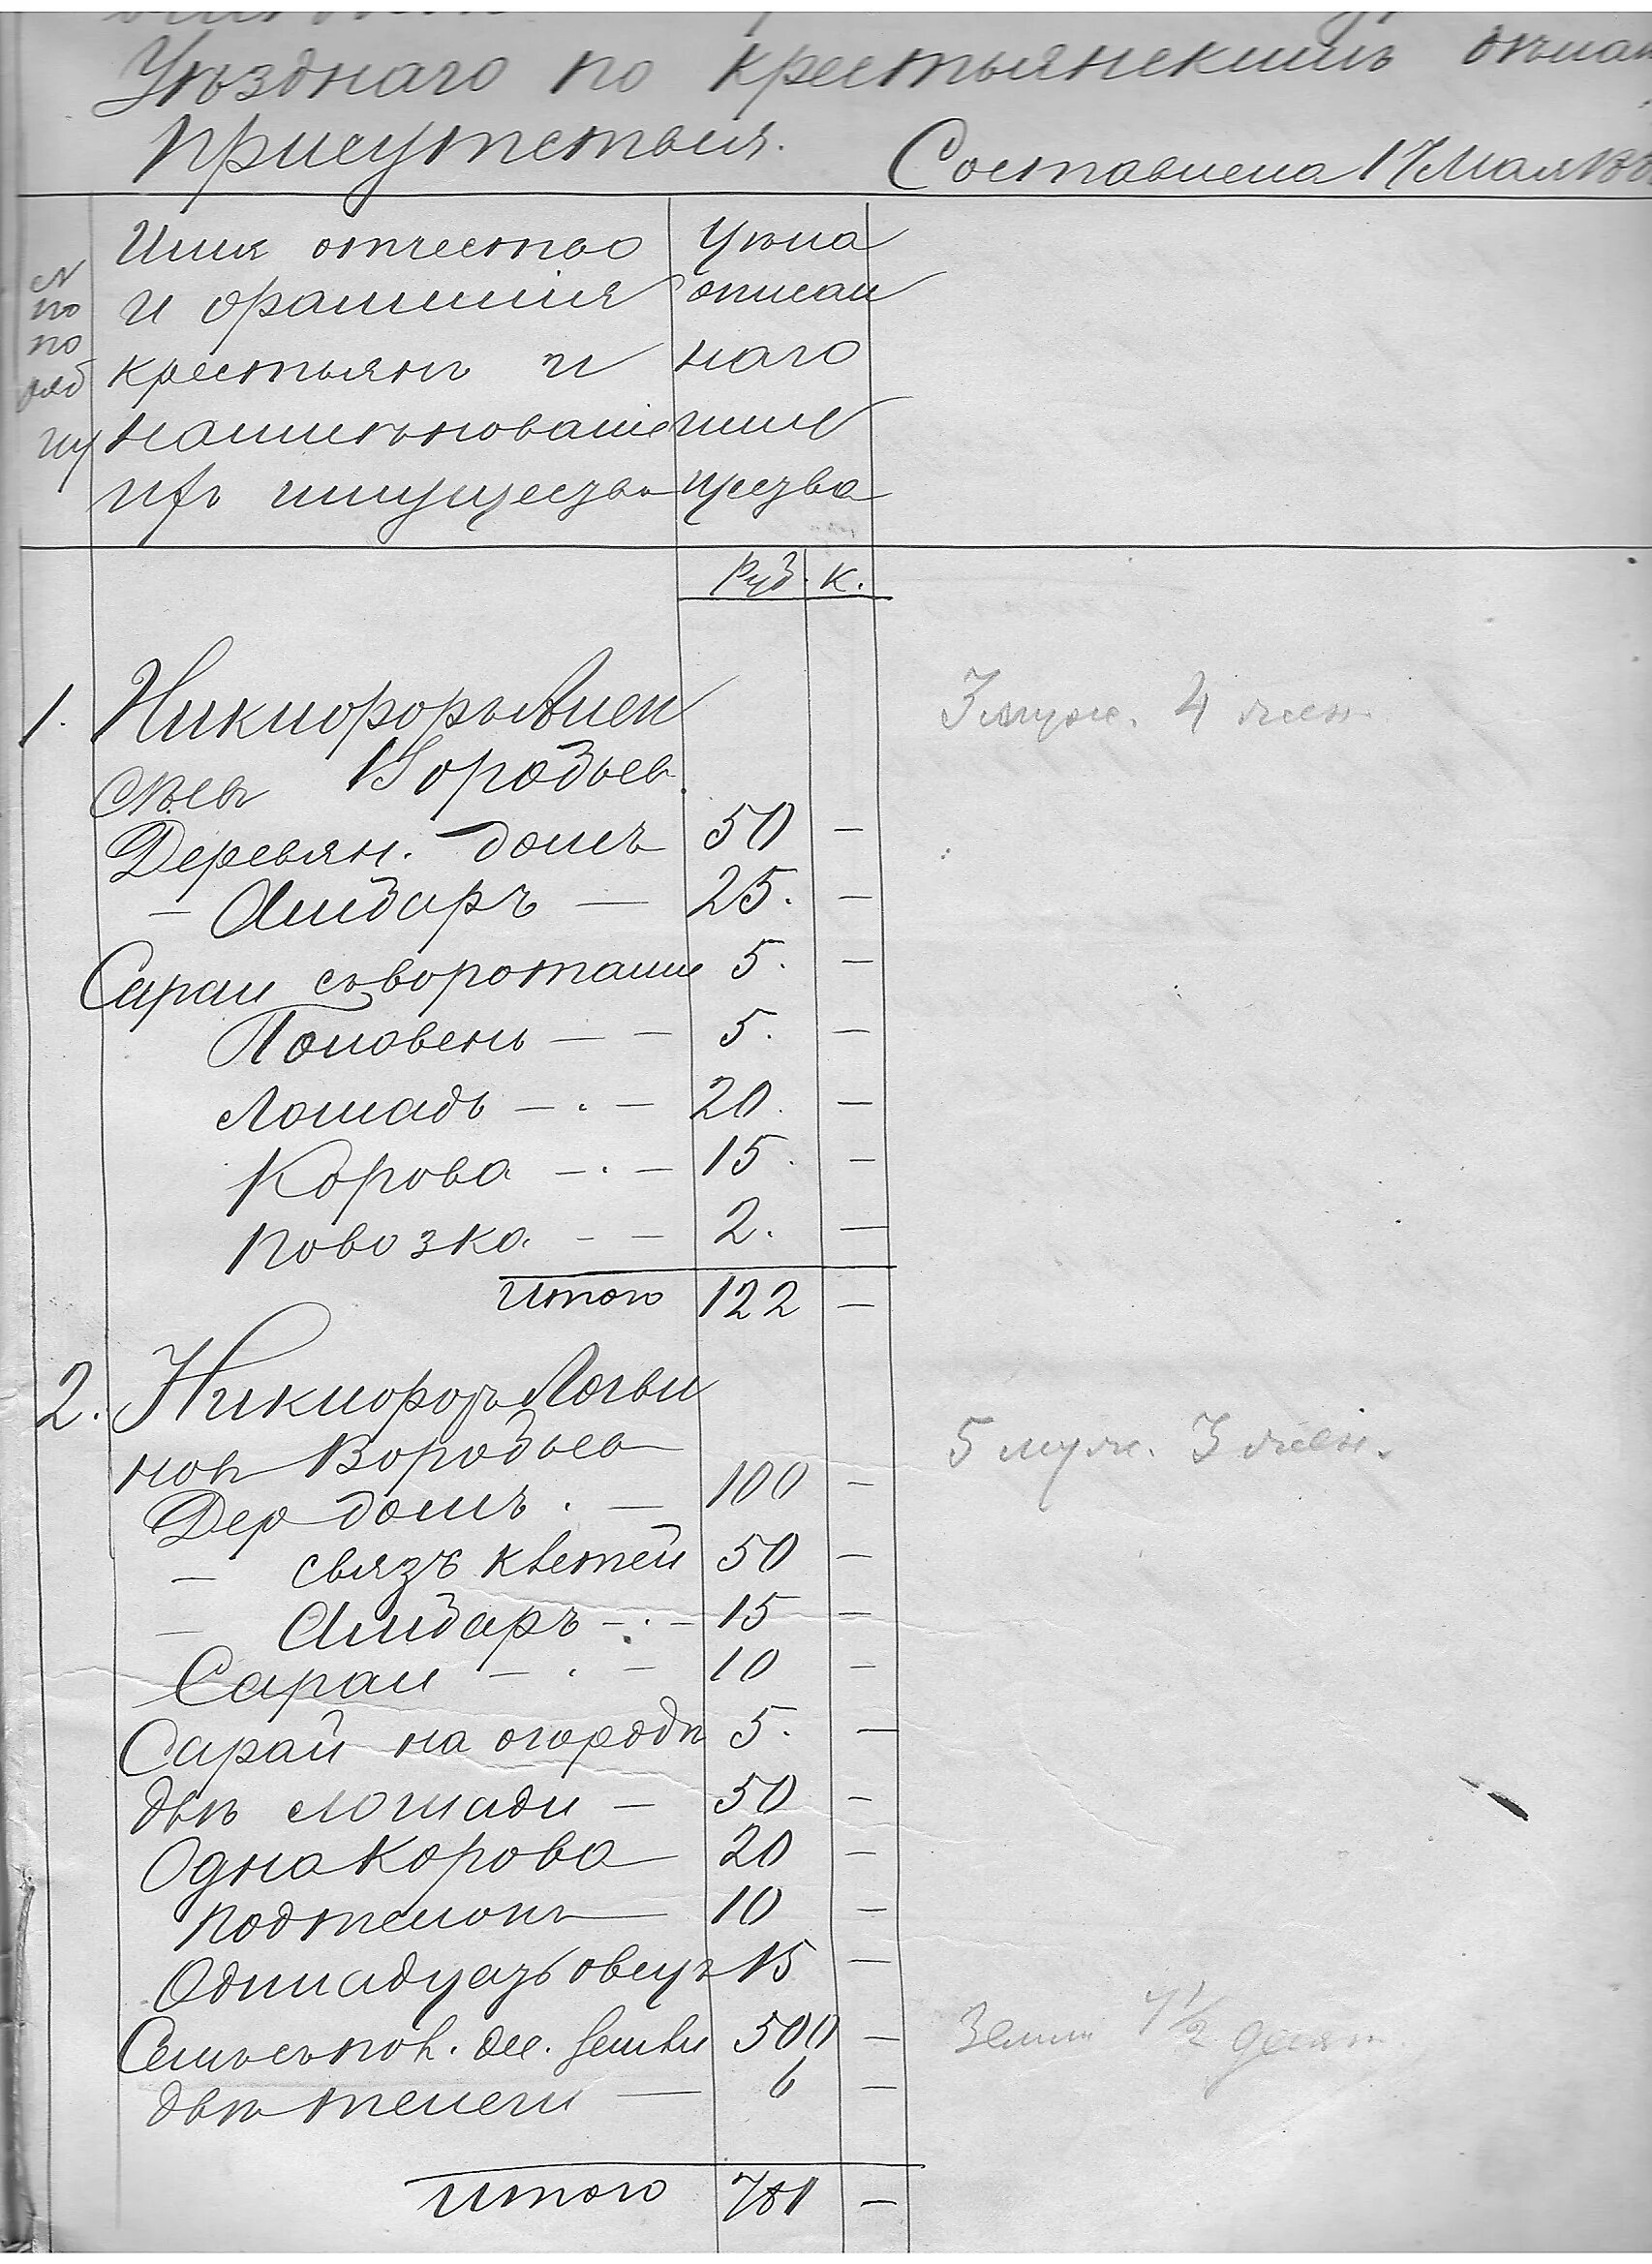 Уѣзднаго по крестьянскимъ дѣлам
присутствія. Составлена 17 Мая 188
N по порядку
Имя отчество
и фамилія
крестьянъ и
наименованіе
ихъ имущества
Цѣна
описан
наго
иму
щества
Руб. К.
1. Никифоръ Алек
сѣевъ Воробьев 3 муж. 4 жен.
Деревян. домъ 50 —
— Амбаръ — 25. —
Сараи съ воротами 5. —
Половень — — 5. —
Лошадь — . — 20. —
Корова — . — 15. —
Повозка — — 2. —
Итого 122 —
2. Никифоръ Логви
нов Воробьев 5 муж. 3 жен.
Дер домъ . — 100 —
— связь клетей 50 —
— Амбаръ — . — 15 —
Сараи — . — 10 —
Сарай на огородѣ 5. —
двѣ лошади — 50 —
Одна Корова 20 —
Подтелокъ 10 —
Одинадцать овецъ 15 —
Семь съ пол. дес. земли 500 — Земли 7 1/2 десят.
двѣ телеги — 6 —
Итого 781 —